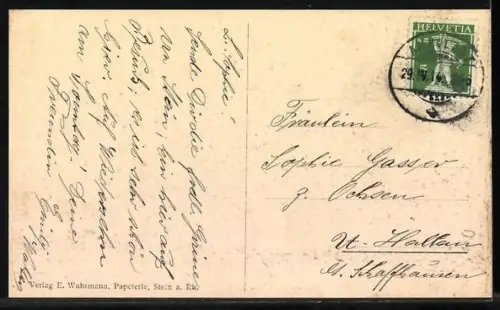 L. Sophie!
Sende Dir die herzl. Grüsse
von Stein, bin hier auf
Besuch, es ist sehr schön
hier. Auf Wiedersehn
am Sonntag! Deine
Freundin
Emily
HELVETIA
29. IV.
Fräulein
Sophie Gasser
z. Ochsen
U-Hallau
Ct. Schaffhausen
Verlag E. Wuhrmann, Papeterie, Stein a. Rh.